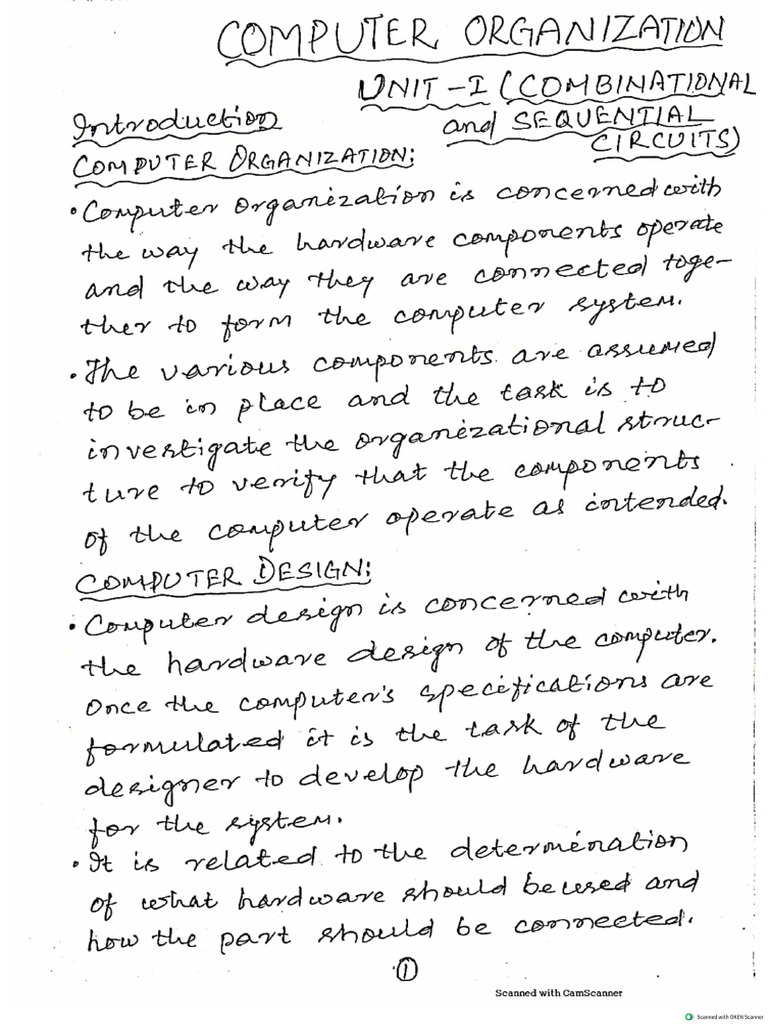 COMPUTER ORGANIZATION
UNIT-I (COMBINATIONAL
and SEQUENTIAL
CIRCUITS)
Introduction
COMPUTER ORGANIZATION:
• Computer organization is concerned with
the way the hardware components operate
and the way they are connected toge-
ther to form the computer system.
• The various components are assumed
to be in place and the task is to
investigate the organizational struc-
ture to verify that the components
of the computer operate as intended.
COMPUTER DESIGN:
• Computer design is concerned with
the hardware design of the computer.
Once the computer's specifications are
formulated it is the task of the
designer to develop the hardware
for the system.
• It is related to the determination
of what hardware should be used and
how the part should be connected.
1
Scanned with CamScanner
Scanned with OKEN Scanner